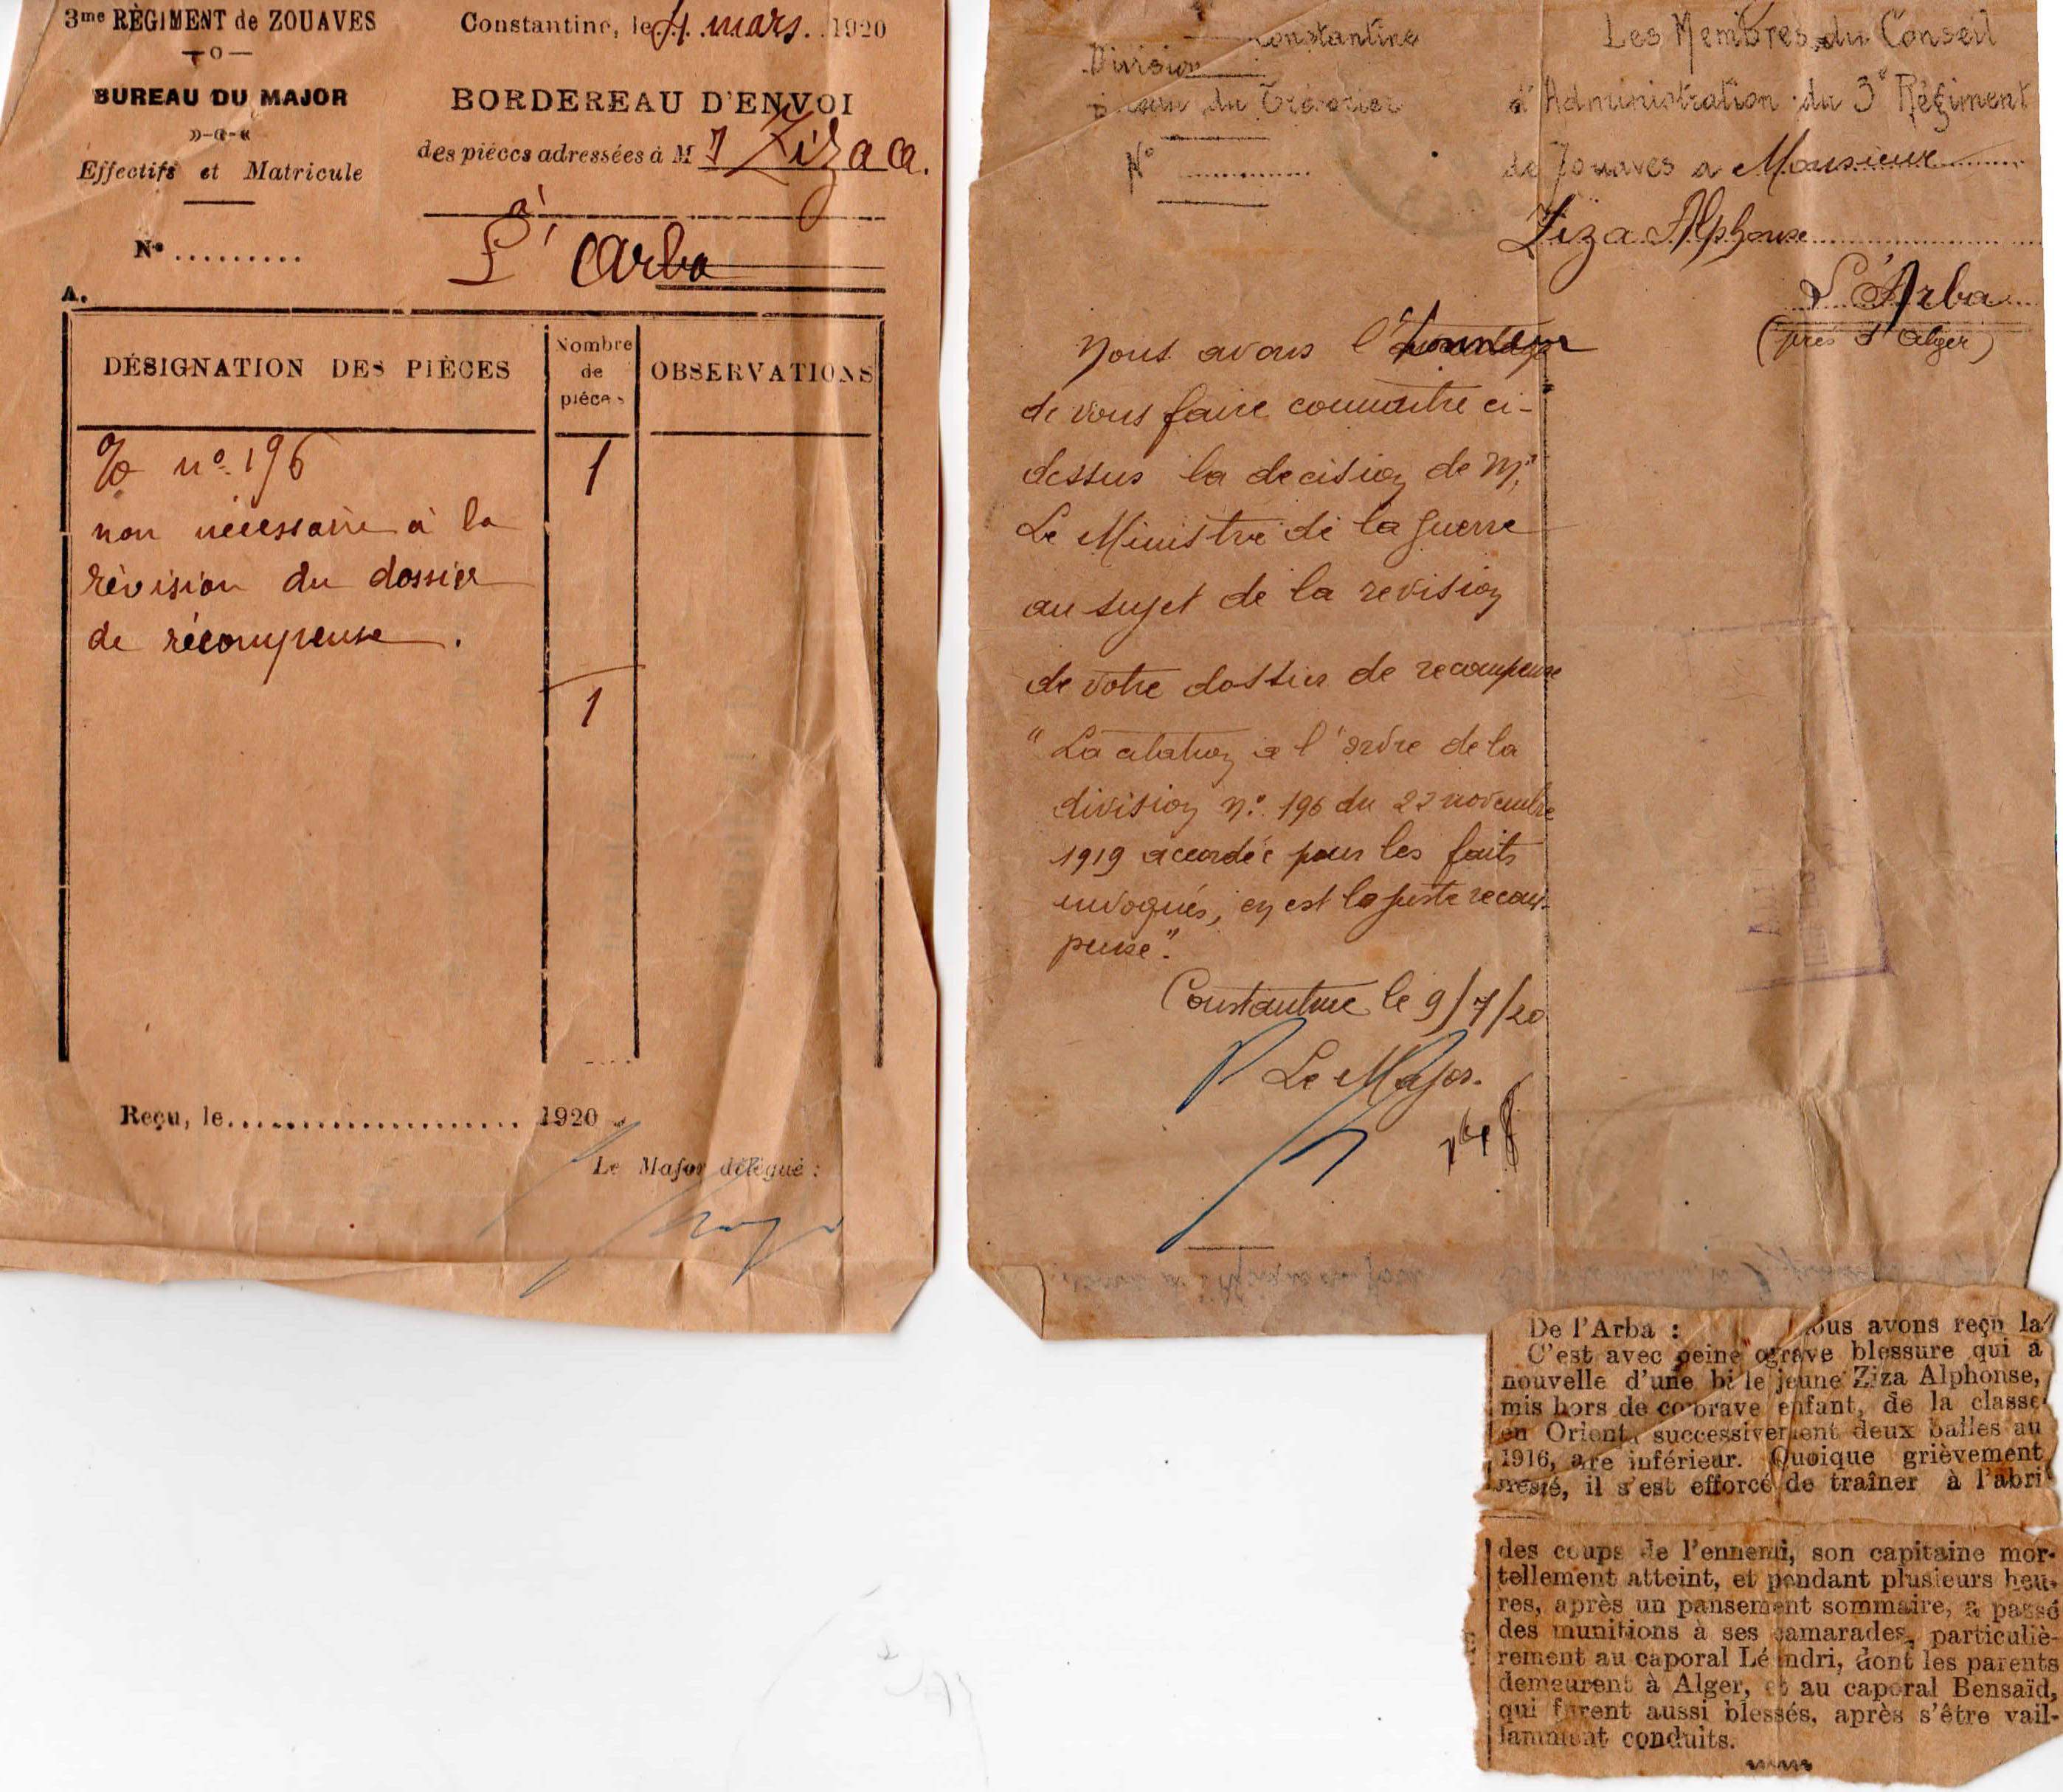 3me RÈGIMENT de ZOUAVES
—o—
BUREAU DU MAJOR
»-a-«
Effectifs et Matricule
N° .........
Constantine, le 4 mars. 1920
BORDEREAU D'ENVOI
des piéces adressées à M Ziza a.
à
L'Arba
A.
DÉSIGNATION DES PIÈCES
Nombre
de
piéces
OBSERVATIONS
% n° 196
1
non nécessaire à la
révision du dossier
de récompense.
1
Reçu, le..................... 1920
Le Major délégué :
Division Constantine
du Trésorier
N° ............
Les Membres du Conseil
d'Administration du 3e Régiment
de Zouaves a Monsieur
Ziza Alphonse
L'Arba
(près d'Alger)
Nous avons l'honneur
de vous faire connaitre ci-
dessus la decision de Mr
Le Ministre de la guerre
au sujet de la revision
de votre dossier de recompense
"La citation a l'ordre de la
division n° 196 du 22 novembre
1919 accordée pour les faits
invoqués, en est la juste recom-
pense".
Constantine le 9/7/20
P Le Major.
De l'Arba : ous avons reçu la
C'est avec peine grave blessure qui a
nouvelle d'une bi le jeune Ziza Alphonse,
mis hors de co brave enfant, de la classe
en Orient, successivement deux balles au
1916, a re inférieur. Quoique grièvement
é, il s'est efforcé de traîner à l'abri
des coups de l'ennemi, son capitaine mor-
tellement atteint, et pendant plusieurs heu-
res, après un pansement sommaire, a passé
des munitions à ses camarades, particuliè-
rement au caporal Lé ndri, dont les parents
demeurent à Alger, et au caporal Bensaïd,
qui furent aussi blessés, après s'être vail-
lamment conduits.